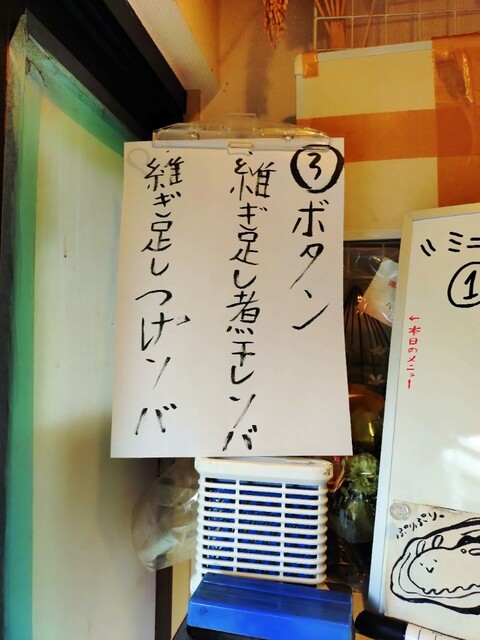 ③ボタン
継ぎ足し煮干しソバ
継ぎ足しつけソバ
〃ミニ
①
←本日のメニュー
ぷりぷり。